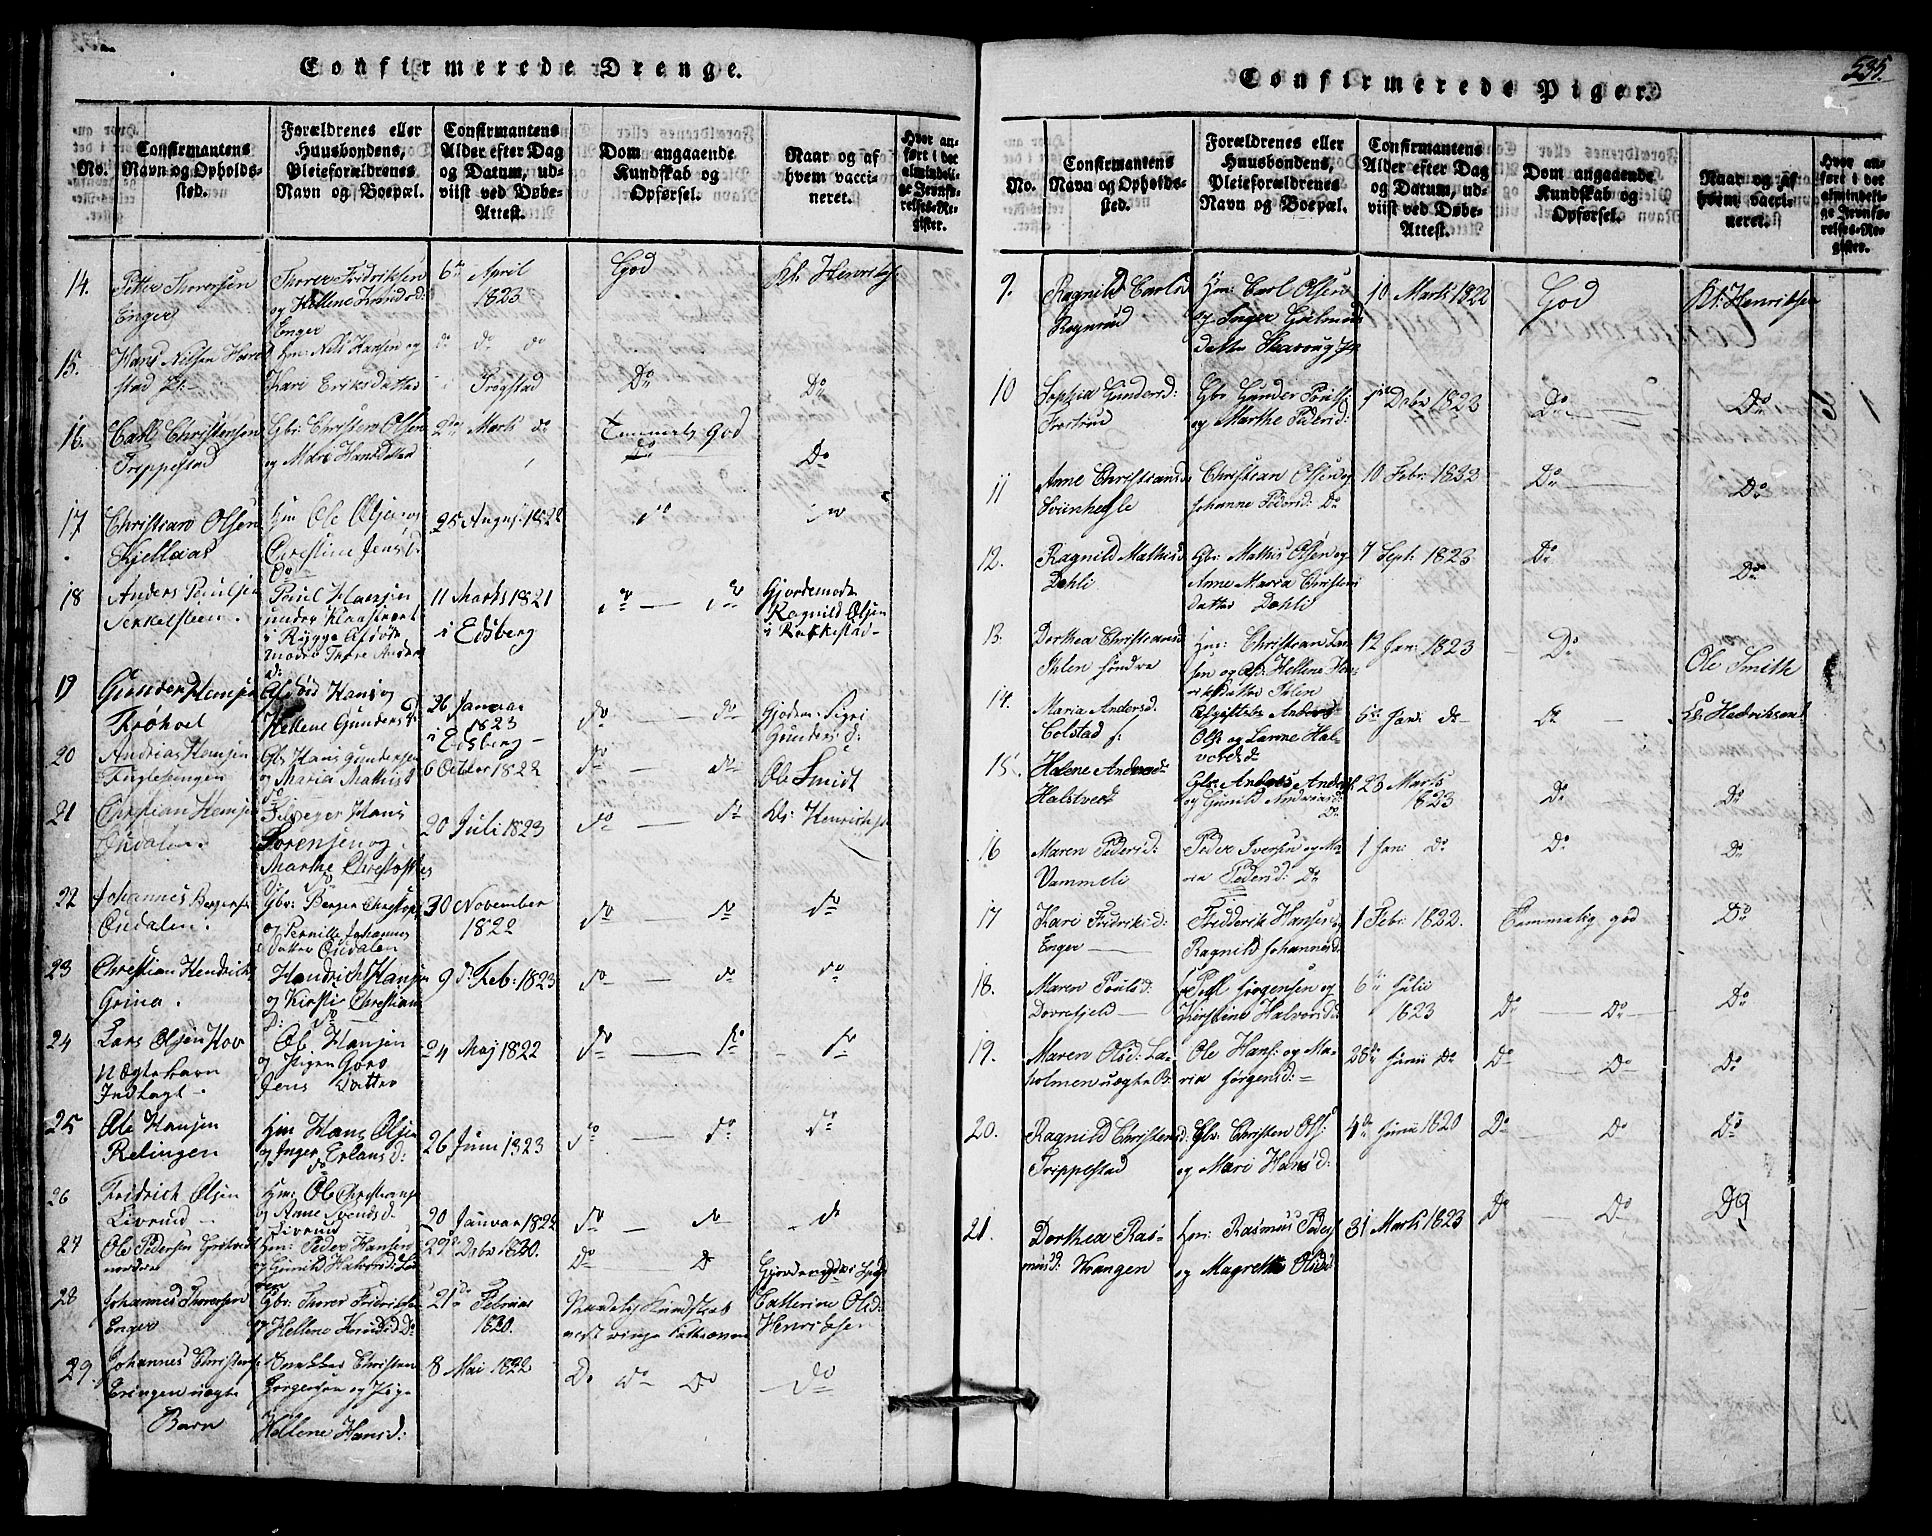 Confirmerede Drenge.
No.
Confirmantens
Navn og Opholds-
sted.
Forældrenes eller
Huusbondens,
Pleieforældrenes
Navn og Boepæl.
Confirmantens
Alder efter Dag
og Datum, ud-
viist ved Døbe-
Attest.
Dom angaaende
Kundskab og
Opførsel.
Naar og af
hvem vacci-
neret.
Hvor an-
ført i det
almindeli-
ge Jevnfø-
relses-Re-
gister.
14.
Petter Thorersen
Enger
Thorer Fridriksen
og Hellene Knudsd:
Enger
6te April
1823
God
Kl: Henriks:
15.
Hans Nilsen
stad
Hm: Nils Hansen og
Kari Eriksdatter
do do do
i Trøgstad
Do
Do
16.
Carls Christensen
Trippestad
Gbr: Christen Olsen
og Mari Hansdatter
2den Marts do
Temmelig God
Do
Do
17
Christian Olsen
Kjellaas
Hm Ole Olsen og
Christine Jensd:
Do
25 August 1822
do
do
18
Anders Poulsen
Paul Hansen
under
i Rygge Afdøde
moder Thore Anders
d:
11 Marts 1821
i Edsberg
do — do
Gjordemoder
Ragnild Olsen
i Rakkestad
19
Gunder Hansen
Trøhoel
Afdød Hans og
Hellene Gundersd:
26 Januar
1823
i Edsberg —
do — do
Gjodem: Sigri
Gundersd:
20
Andrias Hansen
Fuglesengen
Gbr Hans Gundersen
og Maria Mathisd
do
6 October 1822
do — do
Ole Smidt
21
Christian Hansen
Oudalen.
Hans
Sørensen og
Marthe Christofs
20 Juli 1823
do — do
Kl: Henrichs
22
Johannes Bergersen
Oudalen.
Gbr: Berger Christop
og Pernille Johannes
datter Oudalen
30 November
1822
do — do
do
23
Christian Hendrichs
Grina.
Hendrich Hansen
og Kirsti Christians
D: do
9 de Feb: 1823
do — do
do
24
Lars Olsen Hov
uægte barn
Indlagt.
Ole Hansen
og Pigen Goro
Jens Datter
24 Maj 1822
do — do
do
25
Ole Hansen
Relingen
Hm Hans Olsen
og Inger Erlansd:
do
26 Juni 1823
do — do
do
26
Fridrich Olsen
Livrud —
Hm: Ole Christians
og Anne Svendsd.
Livrud
20 Januar 1822
do — do
do
27
Ole Pedersen
nordre
Hm: Peder Hansen
og Gunild Halvorsd:
29de Decbr 1820.
Do — D
28
Johannes Thorersen
Enger
Gbr: Thorer Fridriksen
og Hellene Knudsd Do
21de Februar
1820.
Maadelig Kundskab
Catherine Olsd:
Henriksen
29.
Johannes Christens:
Eringen uægte
Barn
Snekker Christen
Jørgensen og Pige
Hellene Hansd:
8 Mai 1822
Do Do Do
Do
535.
Confirmerede Piger.
No.
Confirmantens
Navn og Opholds-
sted.
Forældrenes eller
Huusbondens,
Pleieforældrenes
Navn og Boepæl.
Confirmantens
Alder efter Dag
og Datum, ud-
viist ved Døbe-
Attest.
Dom angaaende
Kundskab og
Opførsel.
Naar og af
hvem vacci-
neret.
Hvor an-
ført i det
almindeli-
ge Jevnfø-
relses-Re-
gister.
9.
Ragnild Carlsd
Rognrud
Hm: Carl Olsen
og Inger Gulmunds
datter
10 Marts 1822
God
Kl: Henriksen
10
Sophia Gundersd:
Frestrud
Gbr Gunder Pouls:
og Marthe Pedersd:
Debr 1822
Do —
Do
11
Anne Christiansd
Svinhegle
Christian Olsen og
Johanne Pedersd: Do
10 Febr: 1822
Do
Do
12.
Ragnild Mathisd
Dahli
Gbr: Mathis Olsen og
Anne Maria Christens
datter Dahli
7 Sept: 1823
Do
Do
13.
Dorthea Christiansd
Ihlen søndre
Hm: Christian Lar
sen og Hellene Hen
riksdatter Ihlen
12 Jan: 1823
Do
Ole Smith
14.
Maria Andersd:
Colstad
Afgifteb: Anders
Ols: og Larine Hal-
vordsd:
6te Jan: do
Do —
Kl: Hendriksen
15.
Halene Andersd
Halstved
Gbr: Anders Anders
og Gunild Andersd:
Do
23 Marts
1823
Do
Do
16
Maren Pedersd:
Vammeli
Peder Iversen og Ma-
ria Pedersd: Do
1 Jan: Do
Do
Do
17
Kari Fridriksd:
Enger —
Fridderik Hanses og
Ragnild Johannesd:
1 Febr: 1822.
Temmelig god
Do
18.
Maren Poulsd:
Dovrefjeld —
Poul Jørgensen og
Kirstine Halvorsd:
6te Julii
1823
Do — Do
Do
19.
Maren Olsd: La-
holmen uægte B:
Ole Hans: og Ma-
ria Jørgensd: —
28de Junii Do
Do — Do
Do
20.
Ragnild Christensd:
Trippestad
Gbr: Christen Ols:
og Mari Hansd:
4de Junii 1820
Do — Do
Do
21.
Dorthea Ras-
musd: Wrangen
Hm: Rasmus Peders
og Magrethe Olsd:
31 Marts 1823
Do — Do
Do